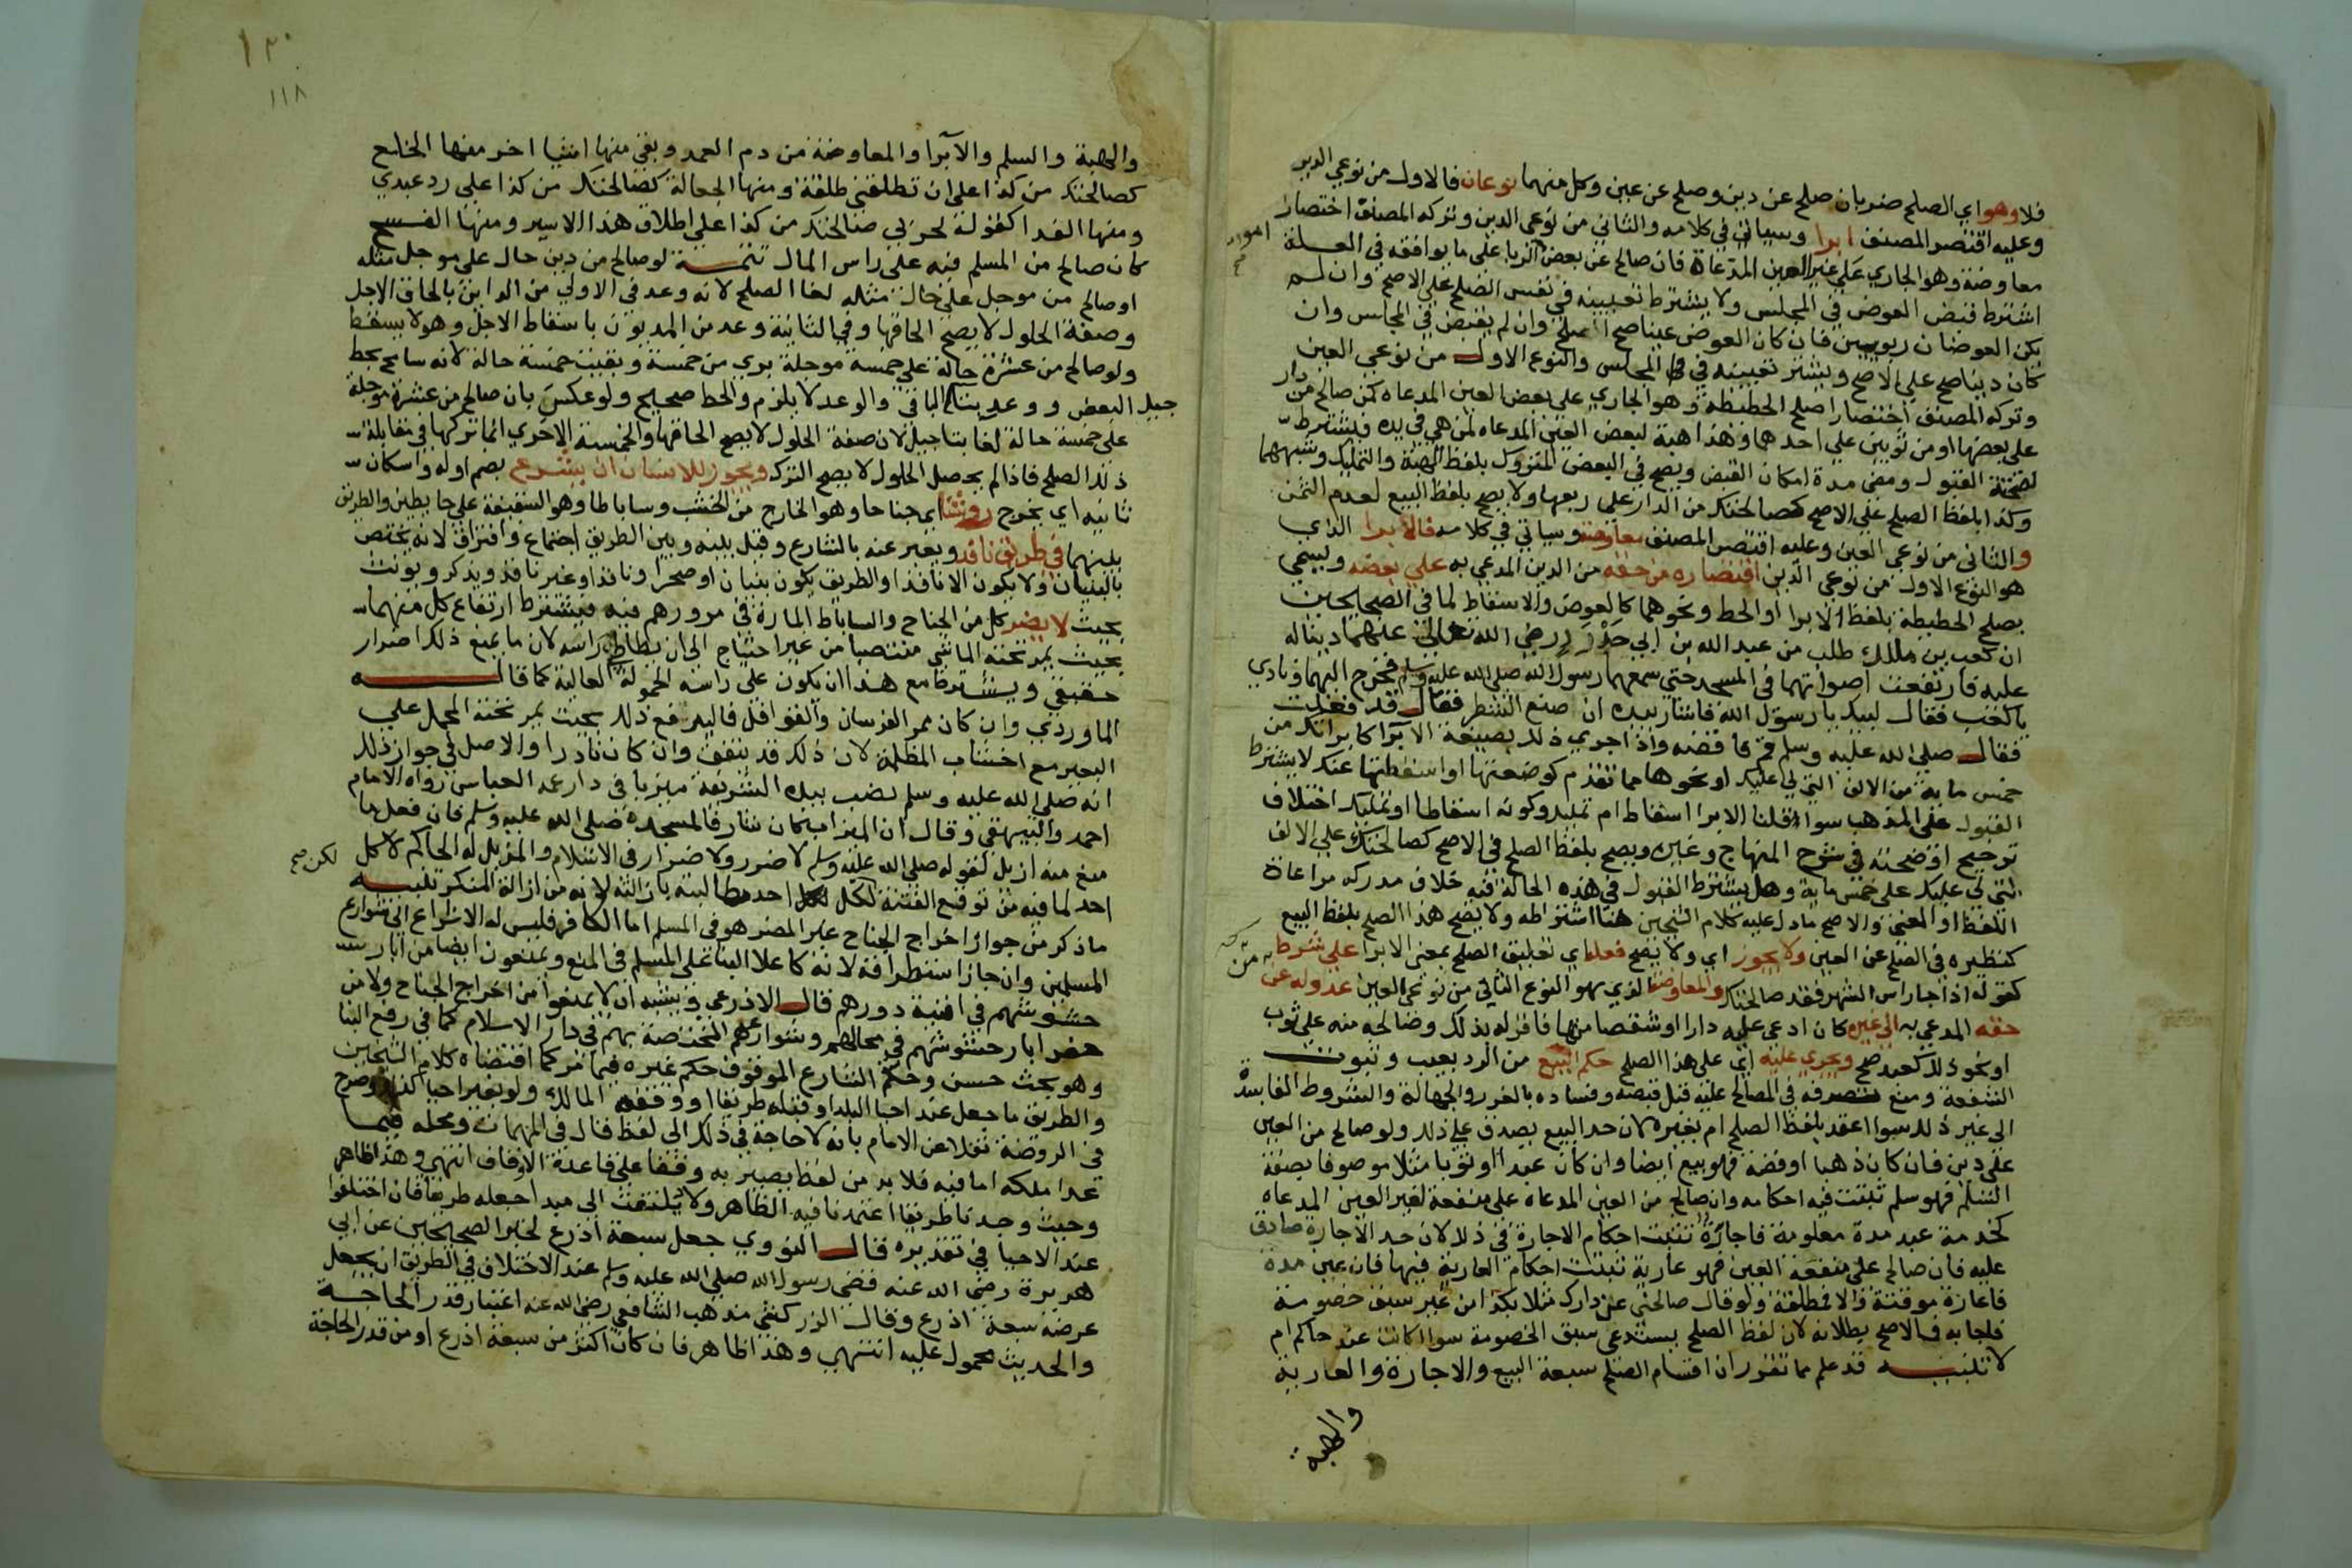 فلا وهو اي الصلح ضربان صلح عن دين وصلح عن عين وكل منهما نوعان فالاول من نوعي الدين
وعليه اقتصر المصنف ابرا وسياتي في كلامه والثاني من نوعي الدين وتركه المصنف اختصارا
معاوضة وهو الجاري على غير العين المدعاة فان صالح عن بعض اموال الربا على ما يوافقه في العلة
اشترط قبض العوض في المجلس ولا يشترط تعيينه في نفس الصلح على الاصح وان لم
يكن العوضان ربويين فان كان العوض عينا صح الصلح وان لم يقبض في المجلس وان
كان دينا صح على الاصح ويشتر تعيينه في المجلس والنوع الاول من نوعي العين
وتركه المصنف اختصارا صلح الحطيطة وهو الجاري على بعض العين المدعاه كمن صالح من دار
على بعضها او من ثوبين على احدهما وهذا هبة لبعض العين المدعاه لمن هي في يده فيشترط
لصحته القبول ومضي مدة امكان القبض ويصح في البعض المتروك بلفظ الهبة والتمليك وشبههما
وكذا بلفظ الصلح على الاصح كصالحتك من الدار على ربعها ولا يصح بلفظ البيع لعدم الثمن
والثاني من نوعي العين وعليه اقتصر المصنف معاوضة وسياتي في كلامه فالابرا الذي
هو النوع الاول من نوعي الدين اقتصاره من حقه من الدين المدعي به على بعضه ويسمى
بصلح الحطيطة بلفظ الابرا او الحط ونحوهما كالعوض والاسقاط لما في الصحيحين
ان كعب بن مالك طلب من عبد الله بن ابي حدرد رضي الله تعالى عنهما دينا له
عليه فارتفعت اصواتهما في المسجد حتى سمعهما رسول الله صلى الله عليه وسلم فخرج اليهما ونادي
يا كعب فقال لبيك يا رسول الله فاشار بيده ان ضع الشطر فقال قد فعلت
فقال صلى الله عليه وسلم قم فاقضه واذا اجري ذلك بصيغة الابرا كابراتك من
خمس ماية من الالف التي لي عليك او نحوها مما تقدم كوضعتها او اسقطتها عنك لا يشترط
القبول على المذهب سوا قلنا الابرا اسقاط ام تمليك وكونه اسقاطا او تمليك اختلاف
ترجيح اوضحته في شرح المنهاج وغيره ويصح بلفظ الصلح في الاصح كصالحتك على الالف
التي لي عليك على خمس ماية وهل يشترط القبول في هذه الحالة فيه خلاف مدركه مراعاة
اللفظ او المعنى والاصح ما دل عليه كلام الشيخين هنا اشتراطه ولا يصح هذا الصلح بلفظ البيع
كنظيره في الصلح عن العين ولا يجوز اي ولا يصح فعله اي تعليق الصلح بمعنى الابرا على شرط
كقوله اذا جا راس الشهر فقد صالحتك والمعاوضة الذي هو النوع الثاني من نوعي العين عدوله عن
حقه المدعي به الي غيره كان ادعى عليه دارا او شقصا منها فاقر له بذلك وصالحه منه على ثوب
او نحو ذلك كعبد صح ويجري عليه اي على هذا الصلح حكم البيع من الرد بعيب وثبوت
الشفعة ومنع تصرفه في المصالح عليه قبل قبضه وفساده بالغرر والجهالة والشروط الفاسدة
الى غير ذلك سوا اعقد بلفظ الصلح ام بغيره لان حد البيع يصدق على ذلك ولو صالح من العين
على دين فان كان ذهبا او فضة فهو بيع ايضا وان كان عبدا او ثوبا مثلا موصوفا بصفة
السلم فهو سلم تثبت فيه احكامه وان صالح من العين المدعاه على منفعة لغير العين المدعاه
كخدمة عبد مدة معلومة فاجارة تثبت احكام الاجارة في ذلك لان حد الاجارة صادق
عليه فان صالح على منفعة العين فهو عارية تثبت احكام العارية فيها فان عين مدة
فاعارة موقتة والا فمطلقة ولو قال صالحني عن دارك مثلا بكذا من غير سبق خصومة
فاجابه فالاصح بطلانه لان لفظ الصلح يستدعى سبق الخصومة سوا اكانت عند حاكم ام
لا تنبيه قد علم مما تقرر ان اقسام الصلح سبعة البيع والاجارة والعارية
والهبة
١٢٠
١١٨
والهبة والسلم والابرا والمعاوضة من دم العمد وبقي منها اشيا اخر منها الخلع
كصالحتك من كذا على ان تطلقني طلقة ومنها الجعالة كصالحتك من كذا على رد عبدي
ومنها الفدا كقوله لحربي صالحتك من كذا على اطلاق هذا الاسير ومنها الفسخ
كان صالح من المسلم فيه على راس المال تتمة لو صالح من دين حال على موجل مثله
او صالح من موجل على حال مثله لغا الصلح لانه وعد في الاولى من الداين بالحاق الاجل
وصفة الحلول لا يصح الحاقها وفي الثانية وعد من المديون باسقاط الاجل وهو لا يسقط
ولو صالح من عشرة حالة على خمسة موجلة بري من خمسة وبقيت خمسة حالة لانه سامح بحط
البعض ووعد بتاجيل الباقي والوعد لا يلزم والحط صحيح ولو عكس بان صالح من عشرة موجلة
على خمسة حالة لغا بتاجيل لان صفة الحلول لا يصح الحاقها والخمسة الاخري انما تركها في مقابلة
ذلك الصلح فاذا لم يحصل الحلول لا يصح الترك ويجوز للانسان ان يشرع بضم اوله واسكان
ثانيه اي يخرج روشنا اي جناحا وهو الخارج من الخشب وساباطا وهو السقيفة على حايطين والطريق
بينهما في طريق نافذ ويعبر عنه بالشارع وقيل بينه وبين الطريق اجتماع وافتراق لانه يختص
بالبنيان ولا يكون الا نافذا والطريق يكون ببنيان او صحرا ونافذا وغير نافذ ويذكر ويونث
بحيث لا يضر كل من الجناح والساباط المارة في مرورهم فيه فيشترط ارتفاع كل منهما
بحيث يمر تحته الماشي منتصبا من غير احتياج الى ان يطاطي راسه لان ما يمنع ذلك اضرار
حقيقي ويشترط مع هذا ان يكون على راسه الحمولة العالية كما قاله
الماوردي وان كان ممر الفرسان والقوافل فاليرفع ذلك بحيث يمر تحته المحمل على
البعير مع اخشاب المظلة لان ذلك قد يتفق وان كان نادرا والاصل في جواز ذلك
انه صلى الله عليه وسلم نصب بيده الشريفة ميزبا في دار عمه العباس رواه الامام
احمد والبيهقي وقال ان الميزاب كان شارفا لمسجده صلى الله عليه وسلم فان فعل ما
منع منه ازيل لقوله صلى الله عليه وسلم لا ضرر ولا ضرار في الاسلام والمزيل له الحاكم لا كل
احد لما فيه من توقع الفتنة لكن لكل احد مطالبته بازالته لانه من ازالة المنكر تنبيه
ما ذكر من جواز اخراج الجناح غير المضر هو في المسلم اما الكافر فليس له الاشراع الى شوارع
المسلمين وان جاز استطراقه لانه كاعلا البنا على المسلم في المنع ويمنعون ايضا من ابار
حشوشهم في افنية دورهم قال الاذرعي ويشبه ان لا يمنعوا من اخراج الجناح ولا من
حفر ابار حشوشهم في محالهم وشوارعهم المختصة بهم في دار الاسلام كما في رفع البنا
وهو بحث حسن وحكم الشارع الموقوف حكم غيره فيما مر كما اقتضاه كلام الشيخين
والطريق ما جعل عند احيا البلد او قبله طريقا او وقفه المالك ولو بغير احيا كذلك وصرح
في الروضة نقلا عن الامام بانه لا حاجة في ذلك الى لفظ قال في المهمات ومحله فيما
عدا ملكه اما فيه فلا بد من لفظ يصير به وقفا على قاعدة الاوقاف انتهى وهذا ظاهر
وحيث وجدنا طريقا اعتمدنا فيه الظاهر ولا يلتفت الى مبدا جعله طريقا فان اختلفوا
عند الاحيا في تقديره قال النووي جعل سبعة اذرع لخبر الصحيحين عن ابي
هريرة رضي الله عنه قضى رسول الله صلى الله عليه وسلم عند الاختلاف في الطريق ان يجعل
عرضه سبعة اذرع وقال الزركشي مذهب الشافعي رضي الله عنه اعتبار قدر الحاجة
والحديث محمول عليه انتهى وهذا ظاهر فان كان اكثر من سبعة اذرع او من قدر الحاجة